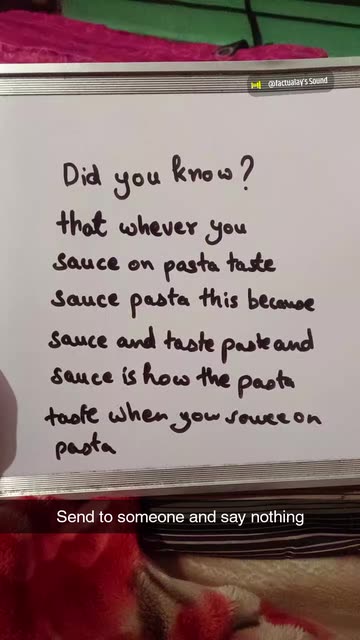 @factualay's Sound
Did you know?
that whever you
sauce on pasta taste
sauce pasta this because
sauce and taste paste and
sauce is how the pasta
taste when you sauce on
pasta
Send to someone and say nothing